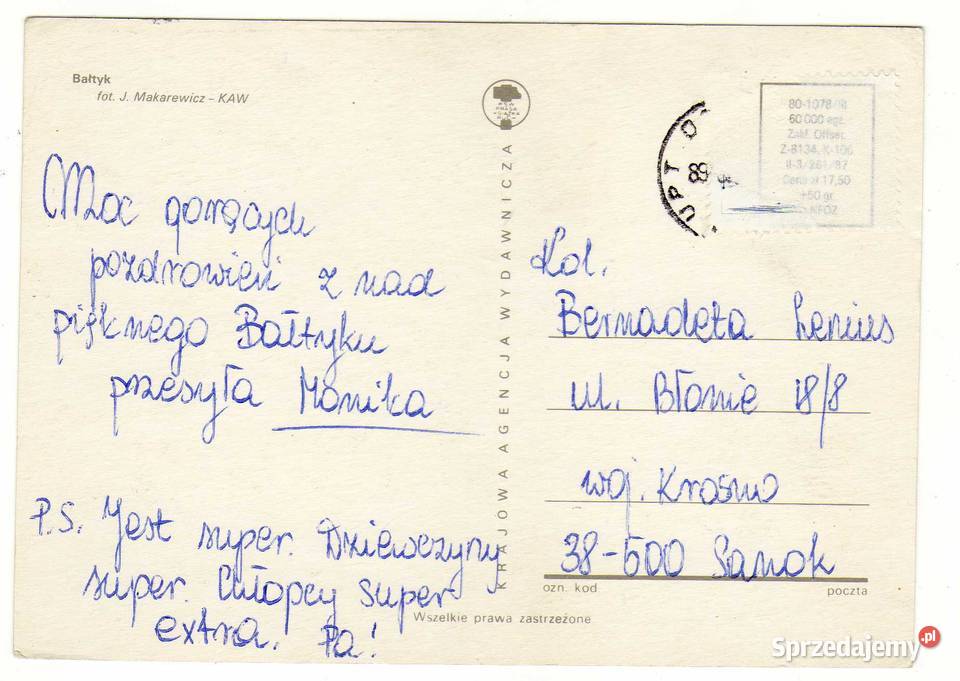 Bałtyk
fot. J. Makarewicz – KAW
Moc gorących
pozdrowień z nad
pięknego Bałtyku
przesyła Monika
P.S. Jest super. Dziewczyny
super. Chłopcy super
extra. Pa!
KRAJOWA AGENCJA WYDAWNICZA
Wszelkie prawa zastrzeżone
UPT
89
80-1078/III
60 000 egz.
Zakł. Offset.
Z-8134, K-106
II-3/261/87
Cena zł 17,50
+50 gr
NFOZ
Kol.
Bernadeta Lenius
ul. Błonie 18/8
woj. Krosno
38-500 Sanok
ozn. kod
poczta
Sprzedajemy.pl